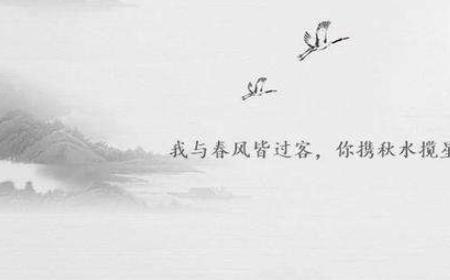 我与春风皆过客，你携秋水揽星